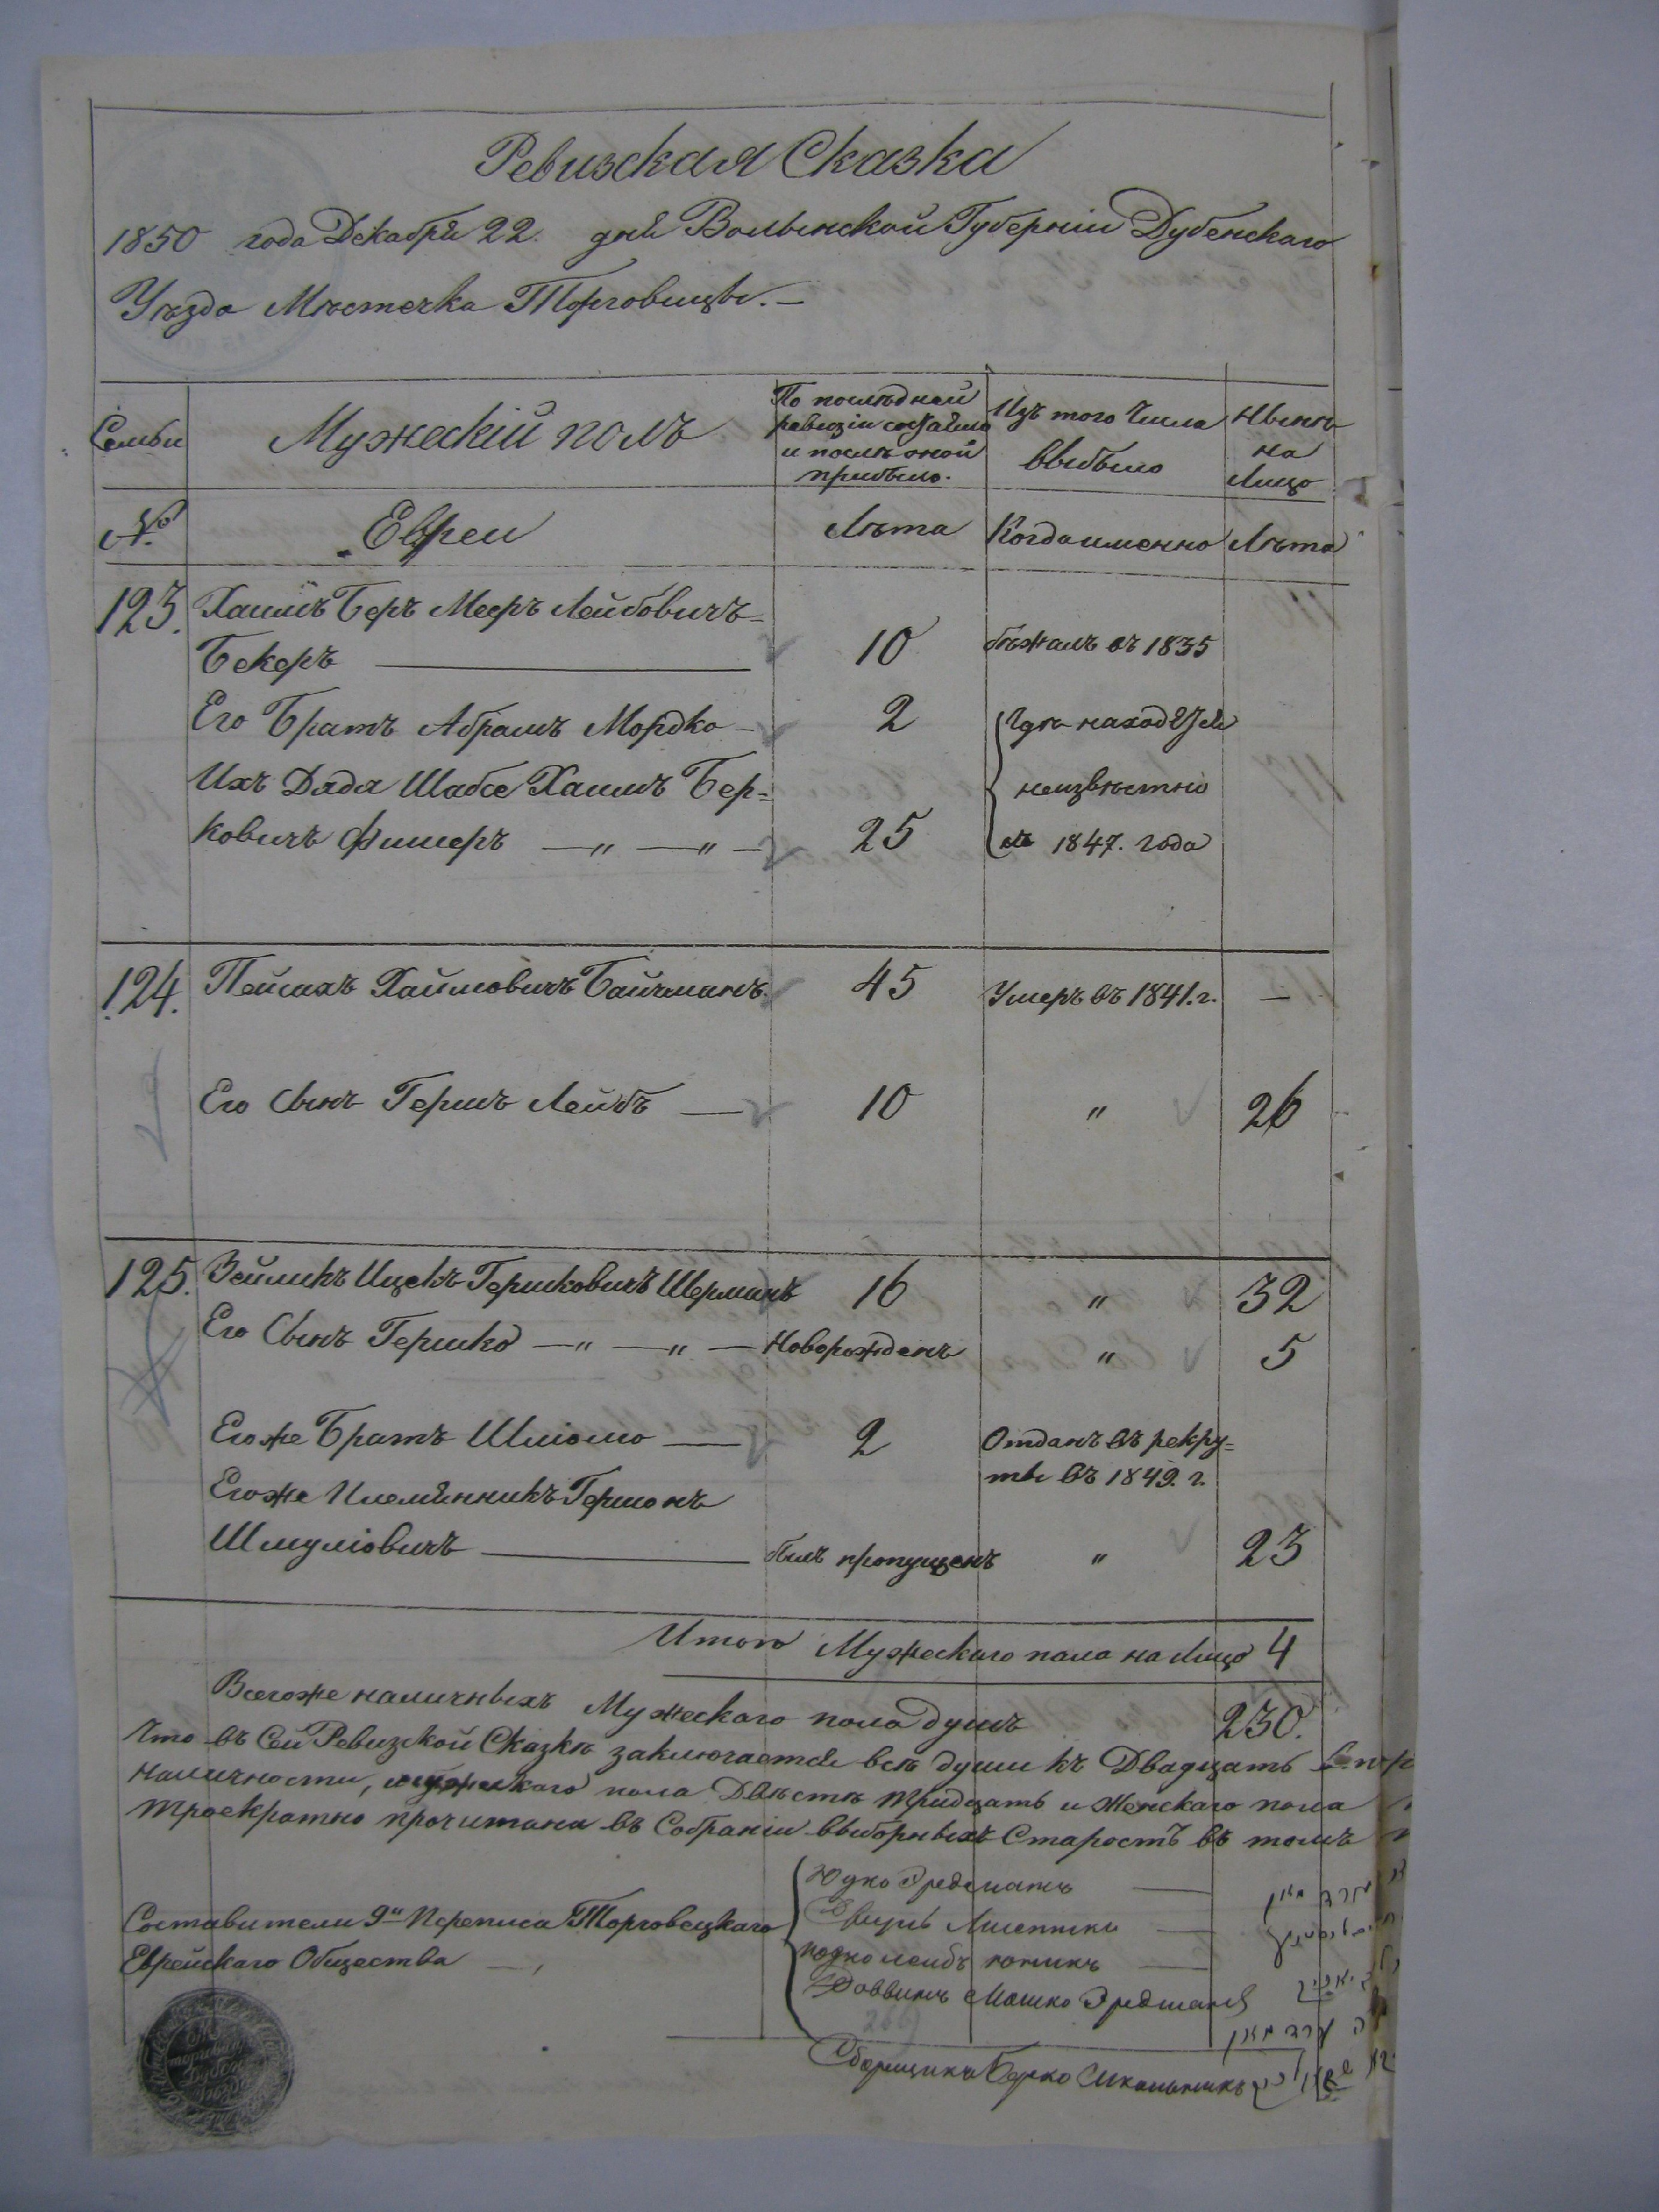 Ревизская Сказка
1850 года Декабря 22. дня Волынской Губерніи Дубенскаго
Уѣзда Мѣстечка Торговицы.—
Семьи
Мужескій полъ
По послѣдней
ревизіи состояло
и послѣ оной
прибыло.
Изъ того Числа
выбыло
Нынѣ
на
Лицо
№
Евреи
Лѣта
Когда именно
Лѣта
123. Хаимъ Беръ Мееръ Лейбовичъ
Бекеръ — 10 бѣжалъ въ 1835
Его Братъ Абрамъ Мордко — 2 Гдѣ находятся
Ихъ Дядя Шабсе Хаимъ Бер= неизвѣстно
ковичъ Фишеръ — " — " — 25 съ 1847. года
124. Пейсахъ Хаимовичъ Байчманъ. 45 Умеръ въ 1841. г. —
Его Сынъ Гершъ Лейбъ — 10 " 26
125. Зейликъ Ицекъ Гершковичъ Шерманъ 16 " 32
Его Сынъ Гершко — " — " — Новорожденъ " 5
Егоже Братъ Шліомо — 2 Отданъ въ рекру=
ты въ 1849. г.
Егоже Племянникъ Гершонъ
Шмуліовичъ — былъ пропущенъ " 23
Итого Мужескаго пола на Лицо 4
Всегоже наличныхъ Мужескаго пола душъ 230.
Что въ Сей Ревизской Сказкѣ заключается всѣ души къ Двадцать
Наличности, мужескаго пола Двѣстѣ тридцать и Женскаго пола
троекратно прочитана въ Собраніи выборныхъ Старостъ въ томъ
Составители 9й Переписи Торговецкаго
Еврейскаго Общества —
Юдко Эрдманъ —
Мошко Эрдманъ
ערדמאן
Сборщикъ Берко Школьникъ